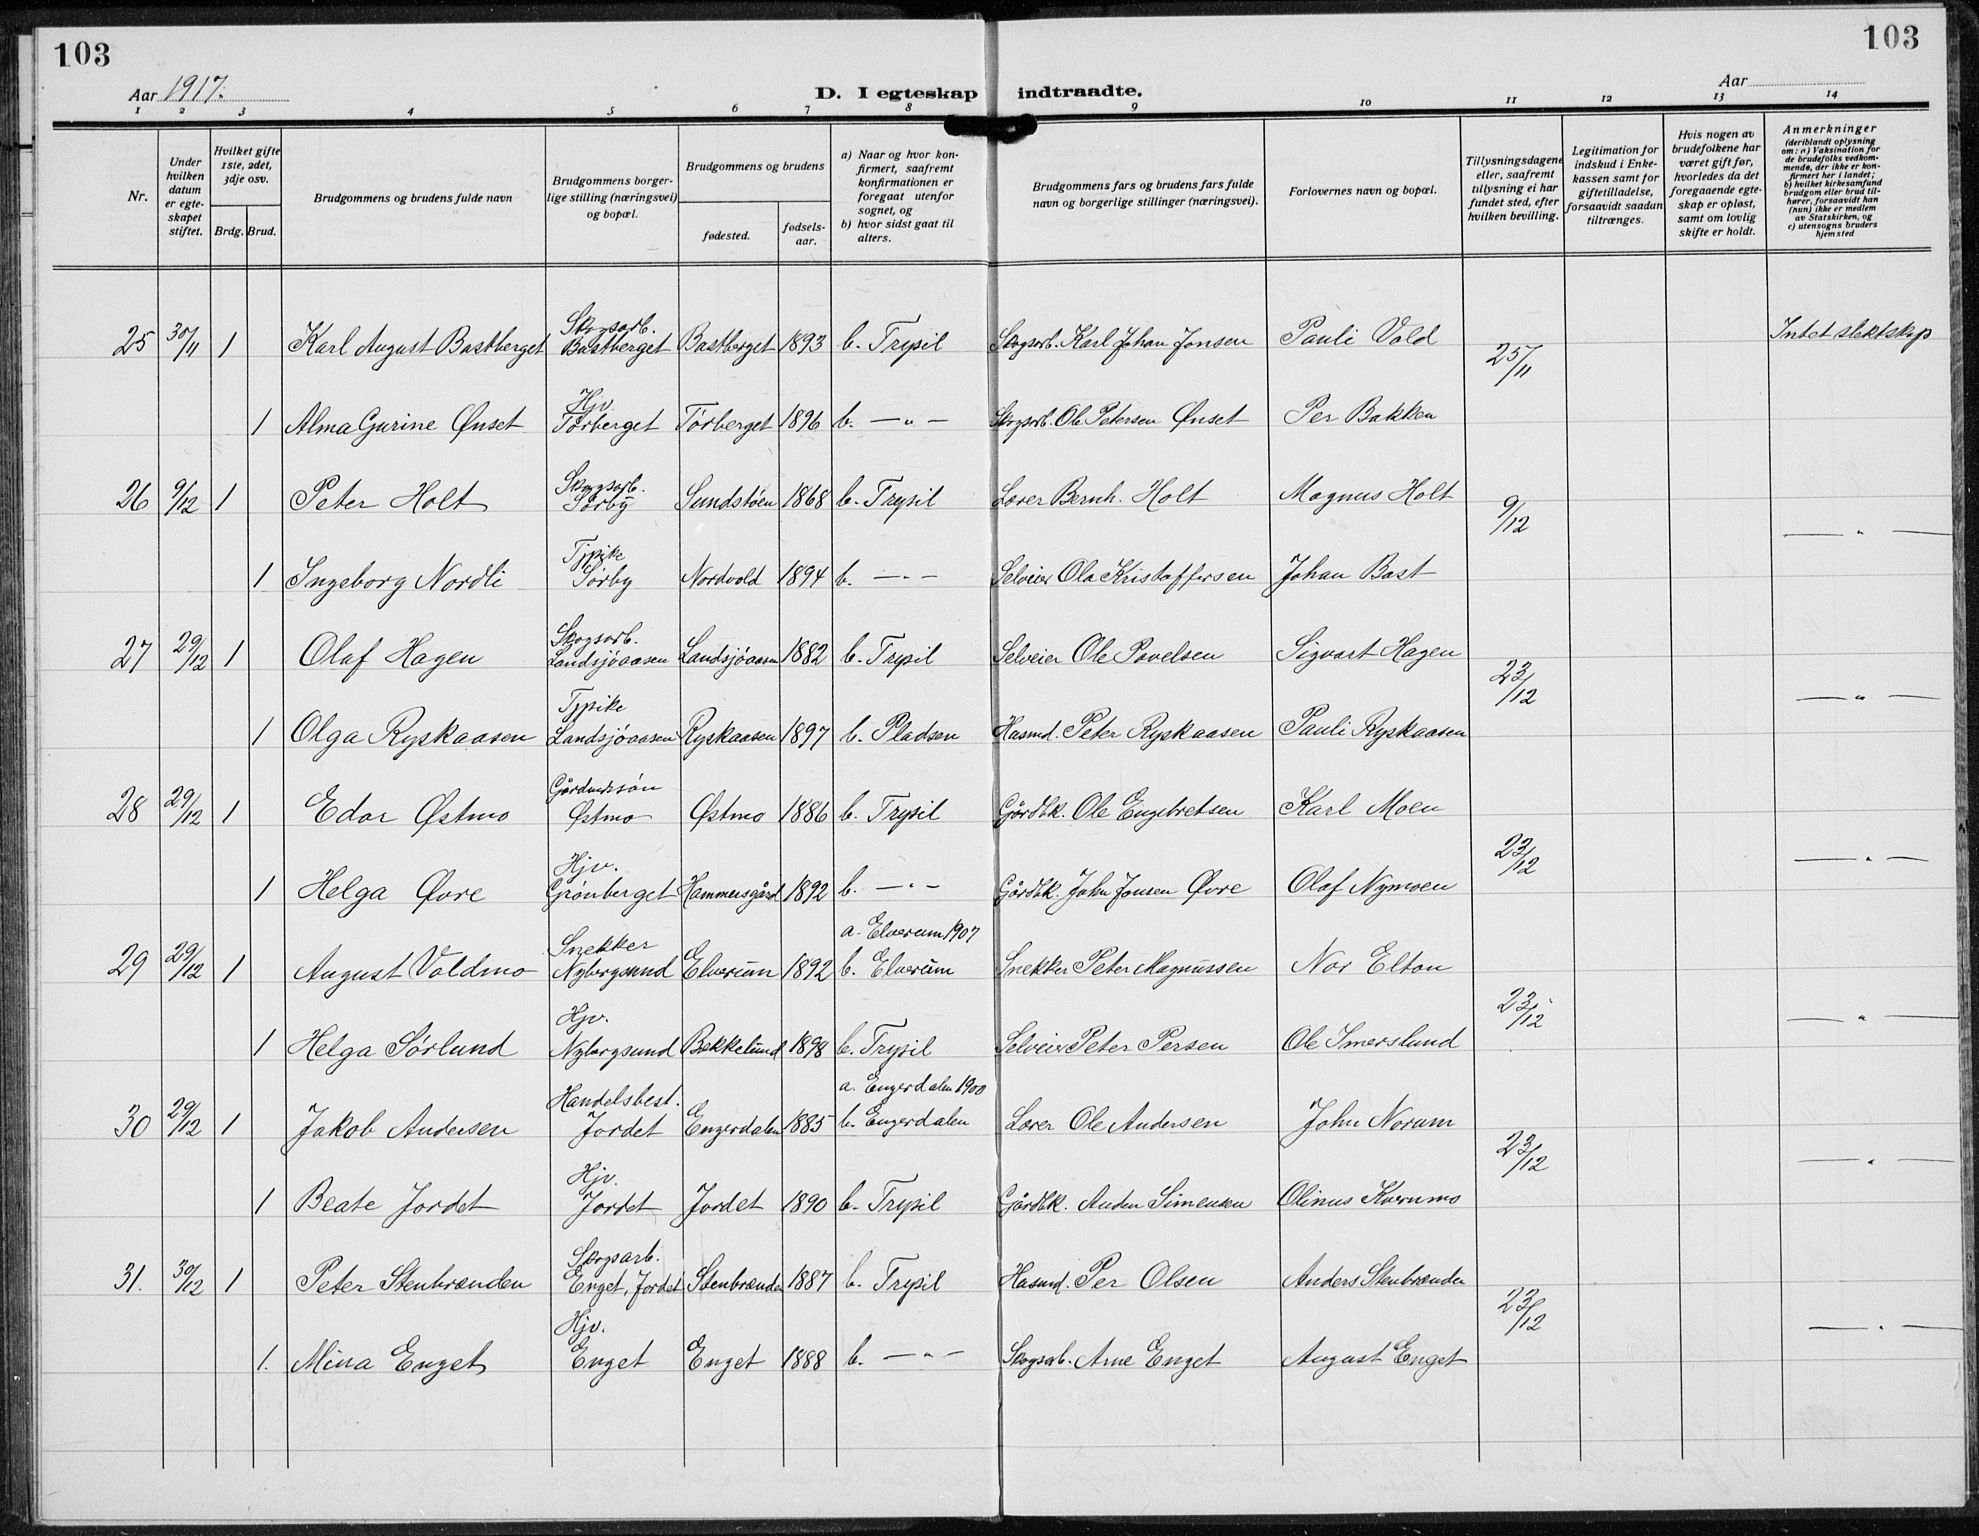 103
103
Aar 1917.
D. I egteskap indtraadte.
Aar
1 2 3 4 5 6 7 8 9 10 11 12 13 14
Nr.
Under hvilken datum er egteskapet stiftet.
Hvilket gifte 1ste, 2det, 3dje osv.
Brdg. Brud.
Brudgommens og brudens fulde navn
Brudgommens borgerlige stilling (næringsvei) og bopæl.
Brudgommens og brudens
fødested.
fødselsaar.
a) Naar og hvor konfirmert, saafremt konfirmationen er foregaat utenfor sognet, og
b) hvor sidst gaat til alters.
Brudgommens fars og brudens fars fulde navn og borgerlige stillinger (næringsvei).
Forlovernes navn og bopæl.
Tillysningsdagene eller, saafremt tillysning ei har fundet sted, efter hvilken bevilling.
Legitimation for indskud i Enkekassen samt for giftetilladelse, forsaavidt saadan tiltrænges.
Hvis nogen av brudefolkene har været gift før, hvorledes da det foregaaende egteskap er opløst, samt om lovlig skifte er holdt.
Anmerkninger (deriblandt oplysning om: a) Vaksination for de brudefolks vedkommende, der ikke er konfirmert her i landet; b) hvilket kirkesamfund brudgom eller brud tilhører, forsaavidt han (hun) ikke er medlem av Statskirken, og c) utensogns bruders hjemsted
25 30/11 1 Karl August Bastberget Skogsarb. Bastberget Bastberget 1893 b. Trysil Skogsarb. Karl Johan Jonsen Pauli Vold 25/11 Intet slektskap
1 Alma Gurine Ønset Hjv. Tørberget Tørberget 1896 b. — „ — Skogsarb. Ole Petersen Ønset Per Bakken
26 9/12 1 Peter Holt Skogsarb. Sørby Sundstøen 1868 b. Trysil Lærer Bernh. Holt Magnus Holt 9/12 — „ —
1 Ingeborg Nordli Tjpike Sørby Nordvold 1894 b. — „ — Selveier Ola Kristoffersen Johan Bast
27 29/12 1 Olaf Hagen Skogsarb. Landsjøaasen Landsjøaasen 1882 b. Trysil Selveier Ole Povelsen Sigvart Hagen 23/12 — „ —
1 Olga Ryskaasen Tjpike Landsjøaasen Ryskaasen 1897 b. Pladsen Husmd. Peter Ryskaasen Pauli Ryskaasen
28 29/12 1 Edor Østmo Gårdmdssøn Østmo Østmo 1886 b. Trysil Gårdbk. Ole Engebretsen Karl Moen 23/12 — „ —
1 Helga Øvre Hjv. Grønberget Hammersgård 1892 b. — „ — Gårdbk. John Jonsen Øvre Olaf Nymoen
29 29/12 1 August Voldmo Snekker Nybergsund Elverum 1892 a. Elverum 1907 b. Elverum Snekker Peter Magnussen Nor Elton 23/12 — „ —
1 Helga Sørlund Hjv. Nybergsund Bekkelund 1898 b. Trysil Selveier Peter Persen Ole Smerslund
30 29/12 1 Jakob Andersen Handelsbest. Jordet Engerdalen 1885 a. Engerdalen 1900 b. Engerdalen Lærer Ole Andersen John Norum 23/12 — „ —
1 Beate Jordet Hjv. Jordet Jordet 1890 b. Trysil Gårdbk. Anders Simensen Olinus Kvernmo
31. 30/12 1 Peter Stenbrænden Skogsarb. Enget, Jordet Stenbrænden 1887 b. Trysil Husmd. Per Olsen Anders Stenbrænden 23/12 — „ —
1. Mina Enget Hjv. Enget Enget 1888 b. — „ — Skogsarb. Arne Enget August Enget